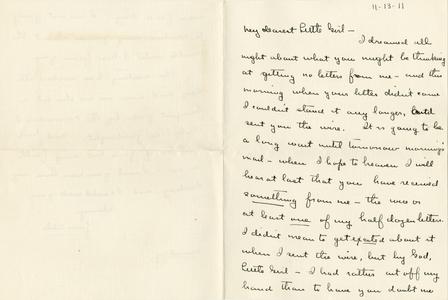 11-13-11
My dearest Little Girl —
I dreamed all
night about what you might be thinking
at getting no letters from me — and this
morning when your letter didn't come
I couldn't stand it any longer,
sent you the wire. It is going to be
a long wait until tomorrow morning's
mail — when I hope to heaven I will
hear at last that you have received
something from me — the wire or
at least one of my half dozen letters.
I didn't mean to get excited about it
when I sent the wire, but by God,
Little Girl — I had rather cut off my
hand than to have you doubt me